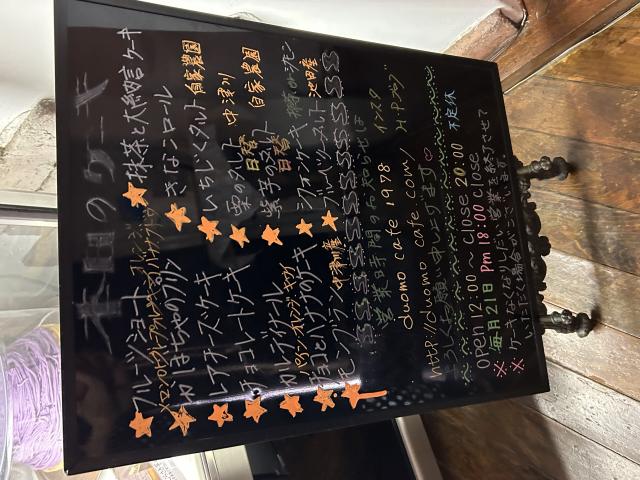 本日のケーキ
フルーツショート
メロン
かぼちゃのプリン
レアチーズケーキ
チョコレートケーキ
カルヴァドール
チョコとバナナのケーキ
モンブラン 中津川産
抹茶と大納言ケーキ
きなこロール
いちじくタルト 自家農園
栗のタルト 中津川
紫芋のタルト 自家農園
シフォンケーキ
ブルーベリータルト 池田産
営業時間のお知らせは インスタ
duomo cafe 1978 HPブログ
http://duomo cafe com/
よろしくお願い申し上げます♡
open 12:00 ~ close 20:00 不定休
毎月21日 Pm 18:00 close
※ケーキなくなりしだい営業を終了させて
※いただく場合がございます。